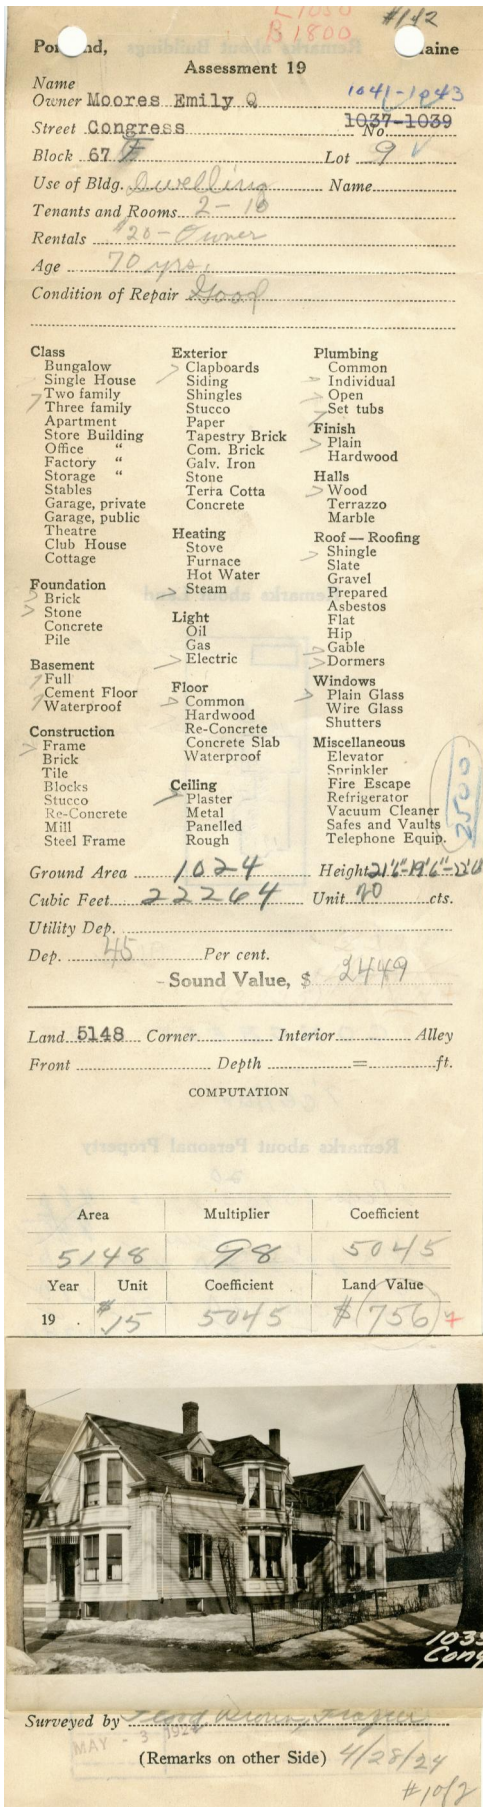 L 1050
B 1800
#142
Portland, Maine
Assessment 19
Name
Owner Moores Emily Q
1041-1043
Street Congress No. 1037-1039
Block 67 F Lot 9
Use of Bldg. Dwelling Name
Tenants and Rooms 2-10
Rentals $20-Owner
Age 70 yrs.
Condition of Repair Good
Class
Bungalow
Single House
Two family
Three family
Apartment
Store Building
Office "
Factory "
Storage "
Stables
Garage, private
Garage, public
Theatre
Club House
Cottage
Foundation
Brick
Stone
Concrete
Pile
Basement
Full
Cement Floor
Waterproof
Construction
Frame
Brick
Tile
Blocks
Stucco
Re-Concrete
Mill
Steel Frame
Exterior
Clapboards
Siding
Shingles
Stucco
Paper
Tapestry Brick
Com. Brick
Galv. Iron
Stone
Terra Cotta
Concrete
Heating
Stove
Furnace
Hot Water
Steam
Light
Oil
Gas
Electric
Floor
Common
Hardwood
Re-Concrete
Concrete Slab
Waterproof
Ceiling
Plaster
Metal
Panelled
Rough
Plumbing
Common
Individual
Open
Set tubs
Finish
Plain
Hardwood
Halls
Wood
Terrazzo
Marble
Roof — Roofing
Shingle
Slate
Gravel
Prepared
Asbestos
Flat
Hip
Gable
Dormers
Windows
Plain Glass
Wire Glass
Shutters
Miscellaneous
Elevator
Sprinkler
Fire Escape
Refrigerator
Vacuum Cleaner
Safes and Vaults
Telephone Equip.
2500
Ground Area 1024 Height 21'6"-19'6"
Cubic Feet 22264 Unit 20 cts.
Utility Dep.
Dep. 45 Per cent.
Sound Value, $ 2449
Land 5148 Corner Interior Alley
Front Depth = ft.
COMPUTATION
Area Multiplier Coefficient
5148 98 5045
Year Unit Coefficient Land Value
19 . $.15 5045 $756
1039
Cong
Surveyed by Floyd Brown, Frazier
MAY - 3 192
(Remarks on other Side) 4/28/24
#1072